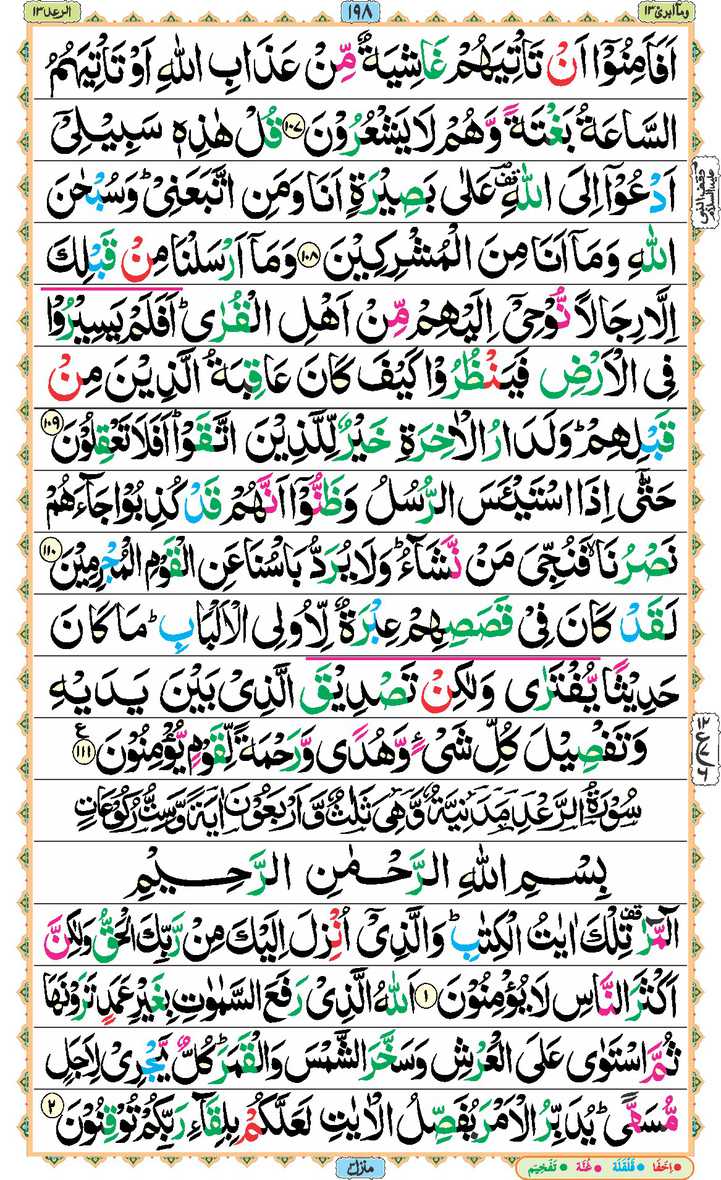 وما ابرئ ١٣
١٩٨
الرعد ١٣
اَفَاَمِنُوْۤا اَنْ تَاْتِيَهُمْ غَاشِيَةٌ مِّنْ عَذَابِ اللّٰهِ اَوْ تَاْتِيَهُمُ
السَّاعَةُ بَغْتَةً وَّهُمْ لَا يَشْعُرُوْنَ ﴿١٠٧﴾ قُلْ هٰذِهٖ سَبِيْلِيْۤ
اَدْعُوْۤا اِلَى اللّٰهِ ؔ عَلٰى بَصِيْرَةٍ اَنَا وَمَنِ اتَّبَعَنِيْ ؕ وَسُبْحٰنَ
اللّٰهِ وَمَاۤ اَنَا مِنَ الْمُشْرِكِيْنَ ﴿١٠٨﴾ وَمَاۤ اَرْسَلْنَا مِنْ قَبْلِكَ
اِلَّا رِجَالًا نُّوْحِيْۤ اِلَيْهِمْ مِّنْ اَهْلِ الْقُرٰى ؕ اَفَلَمْ يَسِيْرُوْا
فِى الْاَرْضِ فَيَنْظُرُوْا كَيْفَ كَانَ عَاقِبَةُ الَّذِيْنَ مِنْ
قَبْلِهِمْ ؕ وَلَدَارُ الْاٰخِرَةِ خَيْرٌ لِّلَّذِيْنَ اتَّقَوْا ؕ اَفَلَا تَعْقِلُوْنَ ﴿١٠٩﴾
حَتّٰۤى اِذَا اسْتَيْئَسَ الرُّسُلُ وَظَنُّوْۤا اَنَّهُمْ قَدْ كُذِبُوْا جَآءَهُمْ
نَصْرُنَا ۙ فَنُجِّيَ مَنْ نَّشَآءُ ؕ وَلَا يُرَدُّ بَاْسُنَا عَنِ الْقَوْمِ الْمُجْرِمِيْنَ ﴿١١٠﴾
لَقَدْ كَانَ فِيْ قَصَصِهِمْ عِبْرَةٌ لِّاُولِى الْاَلْبَابِ ؕ مَا كَانَ
حَدِيْثًا يُّفْتَرٰى وَلٰكِنْ تَصْدِيْقَ الَّذِيْ بَيْنَ يَدَيْهِ
وَتَفْصِيْلَ كُلِّ شَيْءٍ وَّهُدًى وَّرَحْمَةً لِّقَوْمٍ يُّؤْمِنُوْنَ ﴿١١١﴾ ع
سُوْرَةُ الرَّعْدِ مَدَنِيَّةٌ وَّهِيَ ثَلٰثٌ وَّاَرْبَعُوْنَ اٰيَةً وَّسِتُّ رُكُوْعَاتٍ
بِسْمِ اللّٰهِ الرَّحْمٰنِ الرَّحِيْمِ
الٓمّٓرٰ ؔ تِلْكَ اٰيٰتُ الْكِتٰبِ ؕ وَالَّذِيْۤ اُنْزِلَ اِلَيْكَ مِنْ رَّبِّكَ الْحَقُّ وَلٰكِنَّ
اَكْثَرَ النَّاسِ لَا يُؤْمِنُوْنَ ﴿١﴾ اَللّٰهُ الَّذِيْ رَفَعَ السَّمٰوٰتِ بِغَيْرِ عَمَدٍ تَرَوْنَهَا
ثُمَّ اسْتَوٰى عَلَى الْعَرْشِ وَسَخَّرَ الشَّمْسَ وَالْقَمَرَ ؕ كُلٌّ يَّجْرِيْ لِاَجَلٍ
مُّسَمًّى ؕ يُدَبِّرُ الْاَمْرَ يُفَصِّلُ الْاٰيٰتِ لَعَلَّكُمْ بِلِقَآءِ رَبِّكُمْ تُوْقِنُوْنَ ﴿٢﴾
منزل ٣
اِخفَا قَلْقَلَة غُنَّة تَفْخِيْم